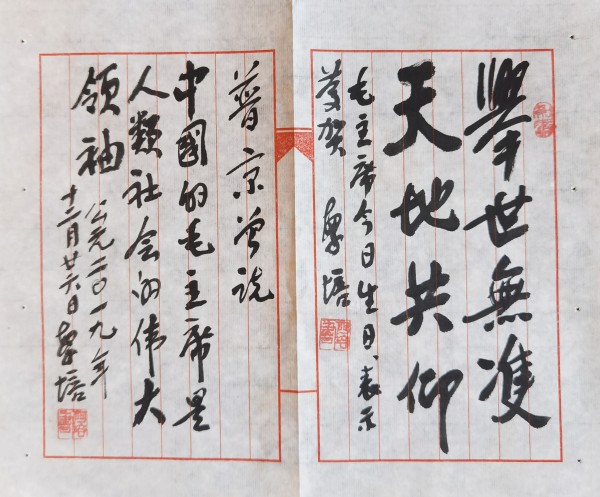 舉世無雙
天地共仰
毛主席今日生日、表示
贺 培
普京曾说
中國的毛主席是
人類社会的伟大
领袖
公元二〇一九年
十二月廿六日 培